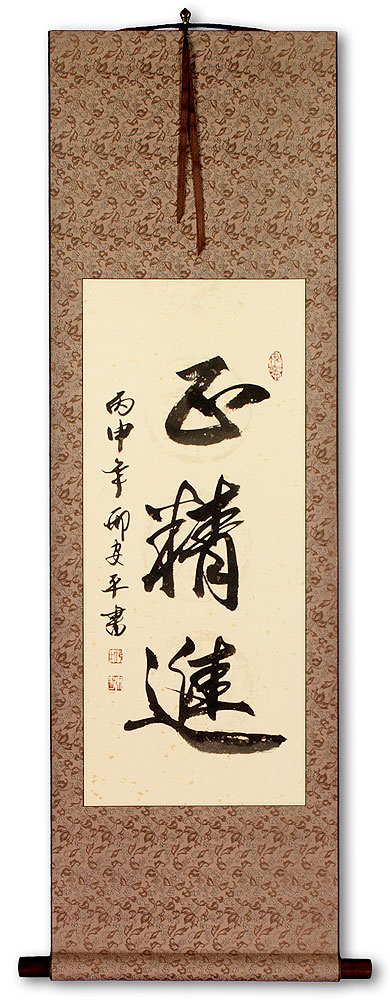 正精進
丙申年邴安平書